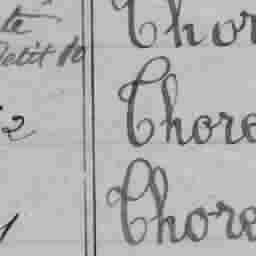 te Chor
Petit do
2 Chore
1 Chore